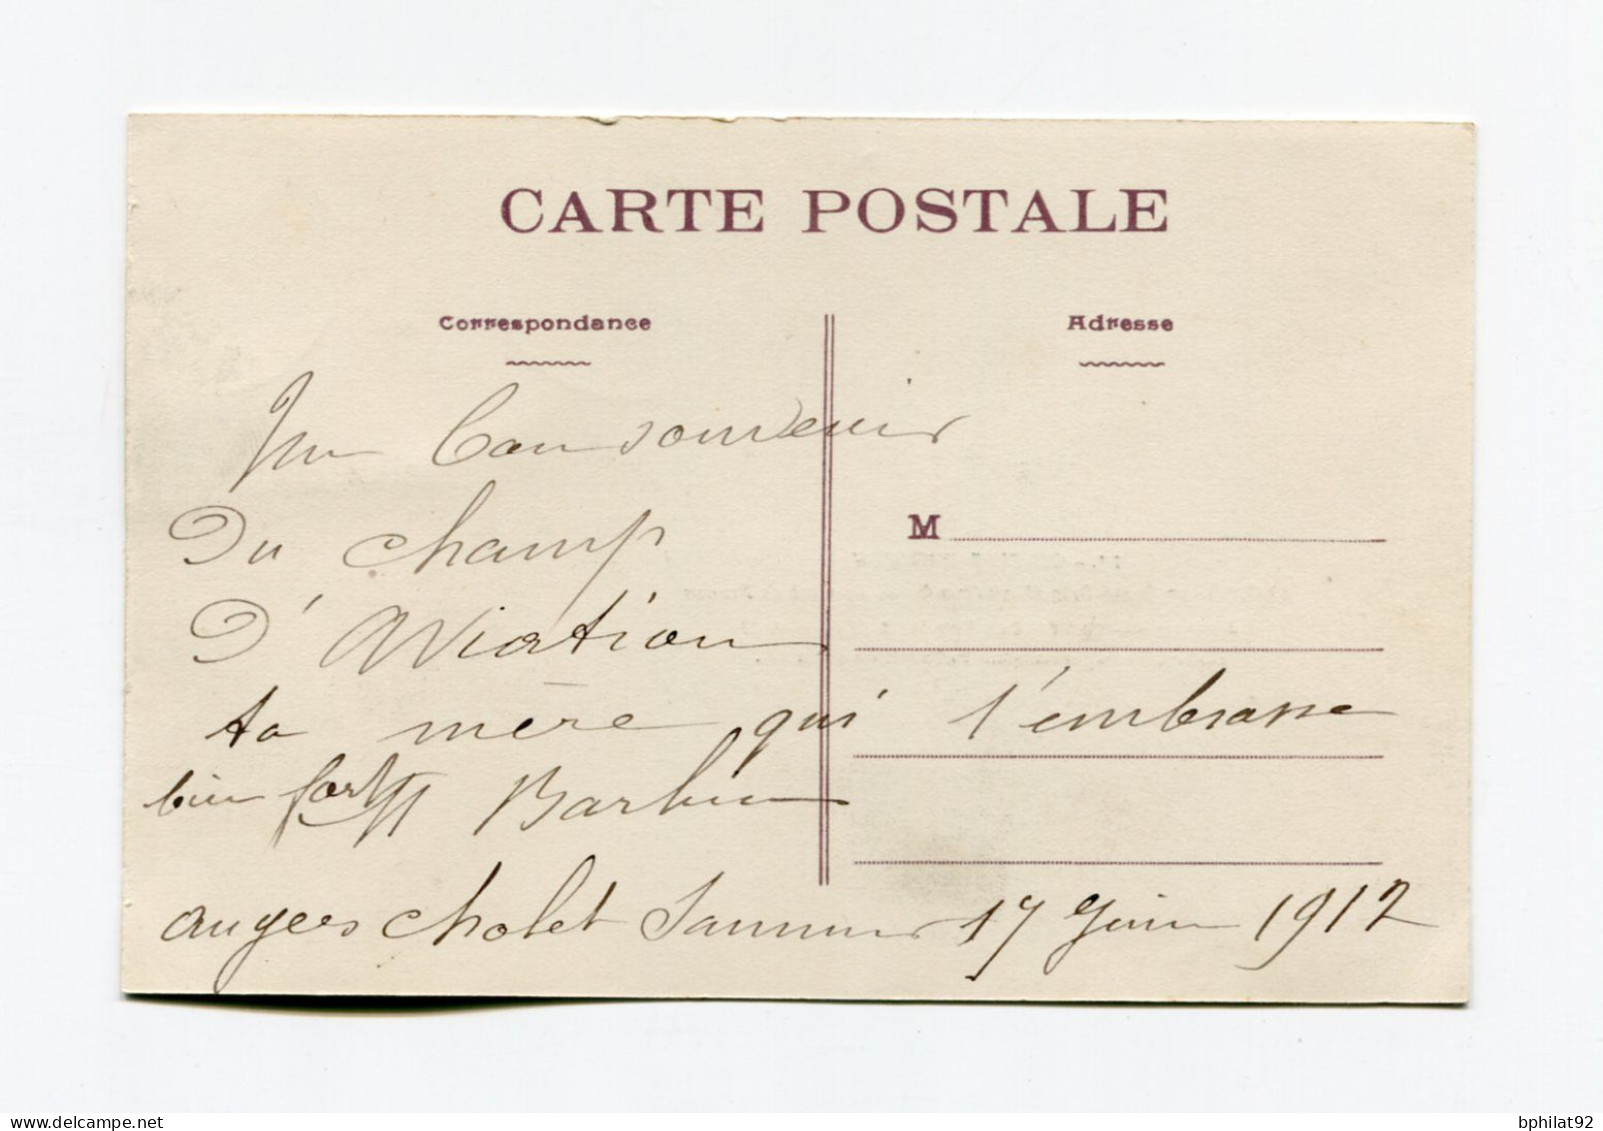 CARTE POSTALE
Correspondance
Adresse
Un bon souvenir
Du champ
D'Aviation
ta mère qui t'embrasse
bien fort Barbin
M
angers cholet Saumur 17 Juin 1912
bphilat92